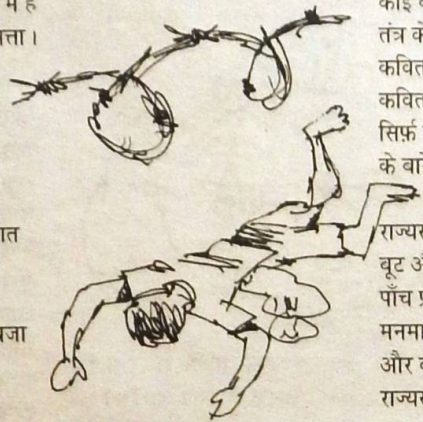 में है
त्ता।
ात
जा
कोई
तंत्र के
कवित
कवित
सिर्फ़
के बारे
राज्यस
बूट औ
पाँच प्र
मनमा
और व
राज्यस